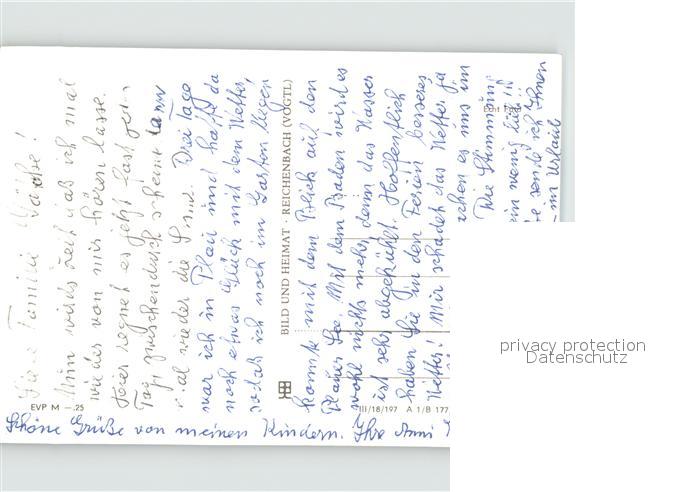 Liebe Familie
Nun wird's Zeit daß ich mal
wieder von mir hören lasse.
Hier regnet es jetzt fast jeden
Tag, zwischendurch scheint dann
mal wieder die Sonne. Drei Tage
war ich in Plau und hatte da
noch etwas Glück mit dem Wetter,
sodaß ich noch im Garten liegen
konnte mit dem Blick auf den
Plauer See. Mit dem Baden wird es
wohl nichts mehr, denn das Wasser
ist sehr abgekühlt. Hoffentlich
haben Sie in den Ferien besseres
Wetter! Mir schadet das Wetter ja
machen es uns im
Die Stimmung
ein wenig
sende ich Ihnen
im Urlaub
Schöne Grüße von meinen Kindern. Ihre Anni
BILD UND HEIMAT · REICHENBACH (VOGTL)
EVP M —.25
III/18/197 A 1/B 177
Echt Foto
privacy protection
Datenschutz